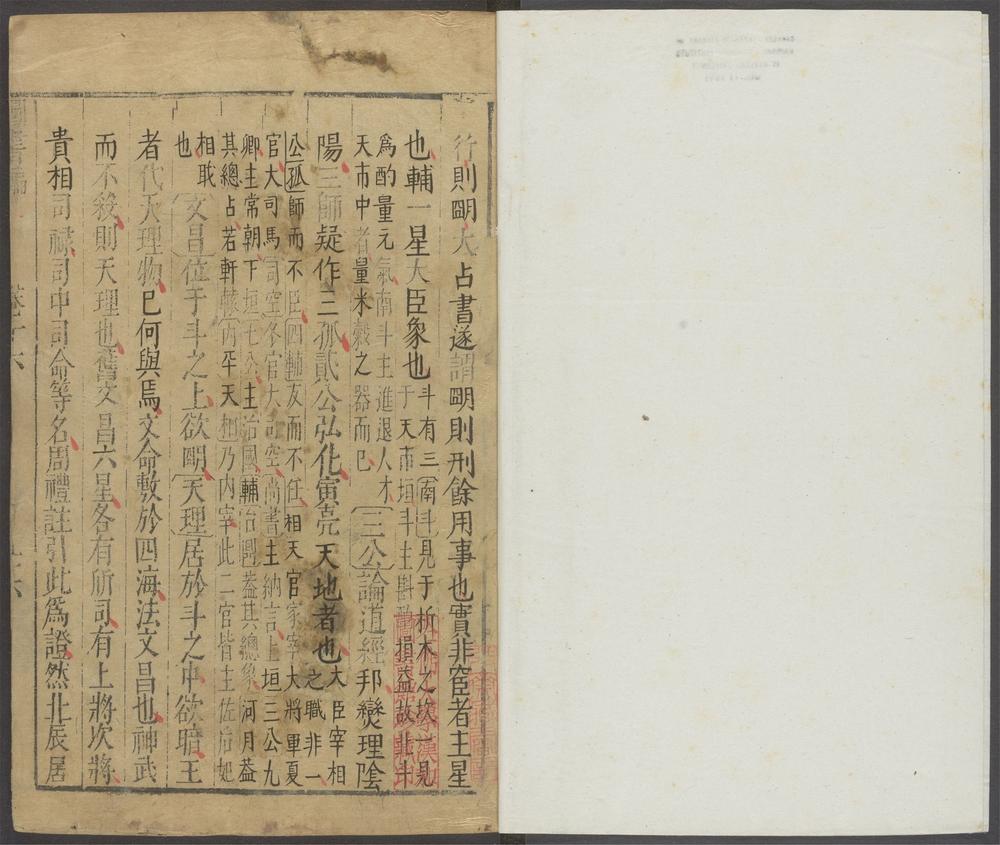 行則明大占書遂謂明則刑餘用事也實非宦者主星
也輔一星大臣象也
斗有三南斗見于析木之次一見
于天市垣斗主斟酌量損益故北斗
爲酌量元氣南斗主進退人才
天市中者量米穀之器而已
三公論道經邦燮理陰
陽三師疑作三孤貳公弘化寅亮天地者也
大臣宰相
之職非一
公孤師而不臣四輔友而不任相天官家宰大將軍夏
官大司馬司空冬官大司空尚書主納言上垣三公九
卿主常朝下垣七公主治國輔治鼎蓋其總象河月蓋
其總占若軒轅內平天相乃內宰此二官皆主佐后妃
相戢
也
文昌位于斗之上欲明天理居於斗之中欲暗王
者代天理物已何與焉文命敷於四海法文昌也神武
而不殺則天理也舊文昌六星各有所司有上將次將
貴相司祿司中司命等名周禮註引此爲證然北辰居